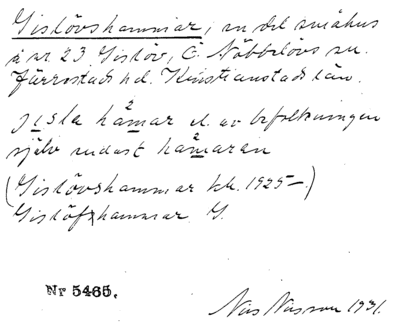 Gislövshammar, en del småhus
å nr 23 Gislöv, Ö. Nöbbelövs sn.
Järrestads hd. Kristianstads län.
Jisla hamar el. av befolkningen
själv endast hamaran
(Gislövshammar kbl. 1925–)
Gislöfshammar G.
Nr 5465.
Nils Nilsson 1931.